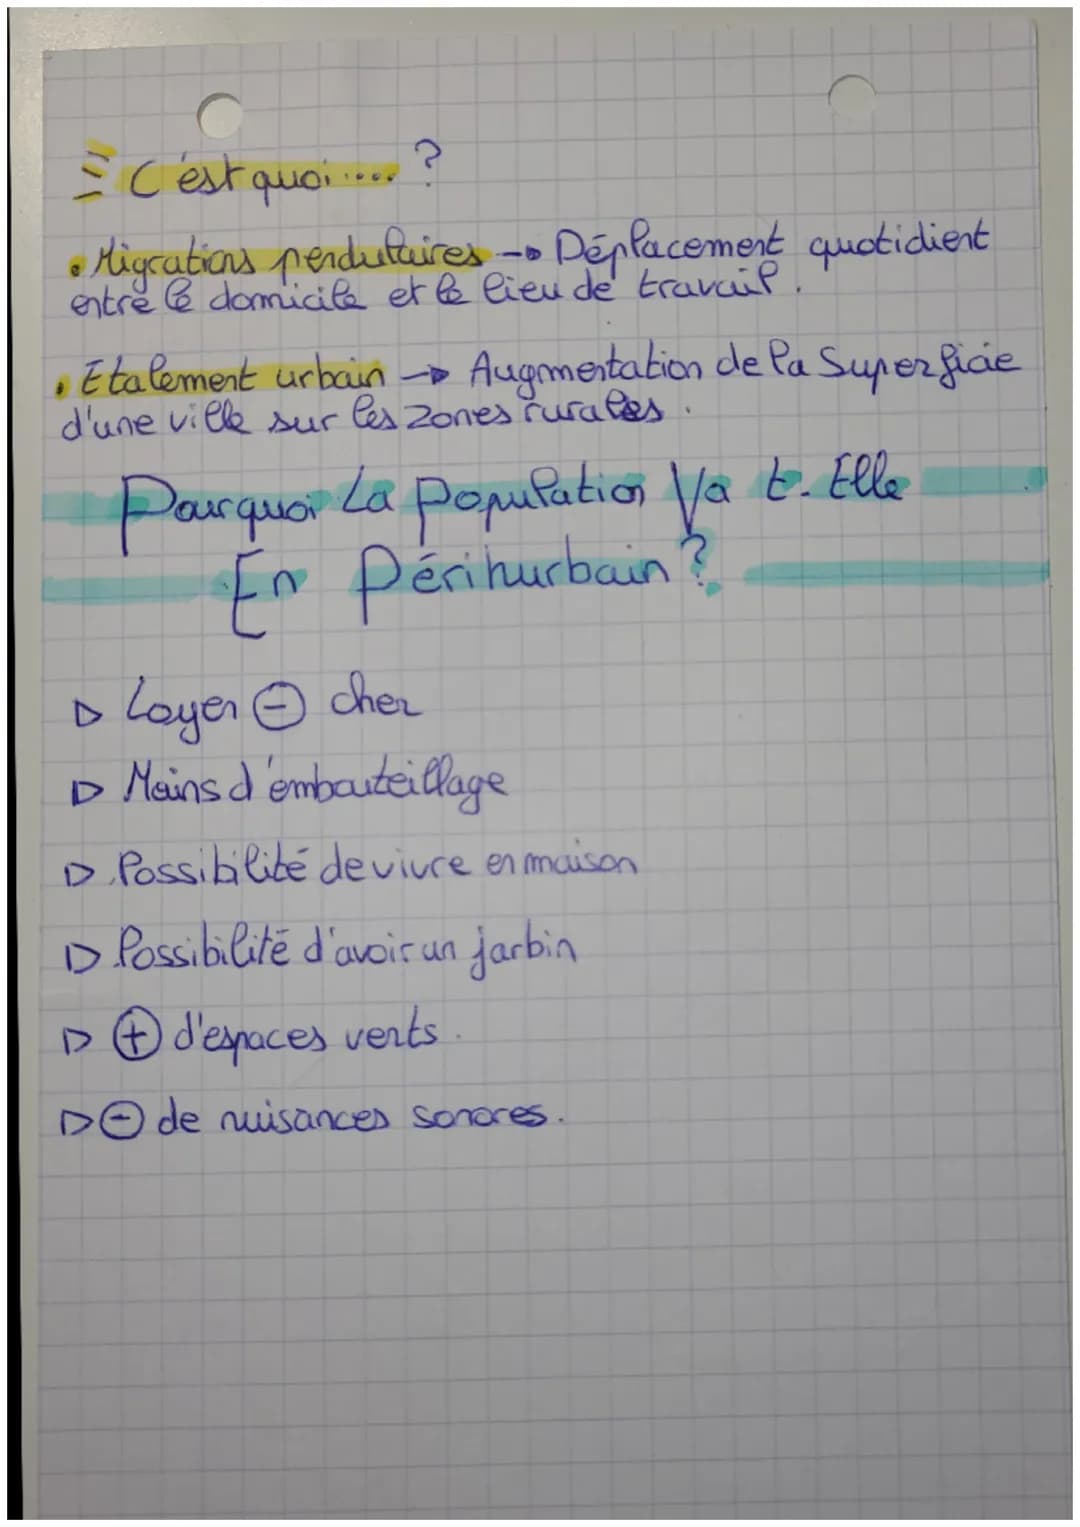 C'est quoi.... ?
• Migrations pendulaires → Déplacement quotidient
entre le domicile et le lieu de travail.
• Etalement urbain → Augmentation de la Superficie
d'une ville sur les zones rurales.
Pourquoi La Population Va t-Elle
En Périhurbain ?
▷ Loyer ⊖ cher
▷ Moins d'embouteillage
▷ Possibilité de vivre en maison
▷ Possibilité d'avoir un jarbin
▷ ⊕ d'espaces verts.
▷ ⊖ de nuisances sonores.